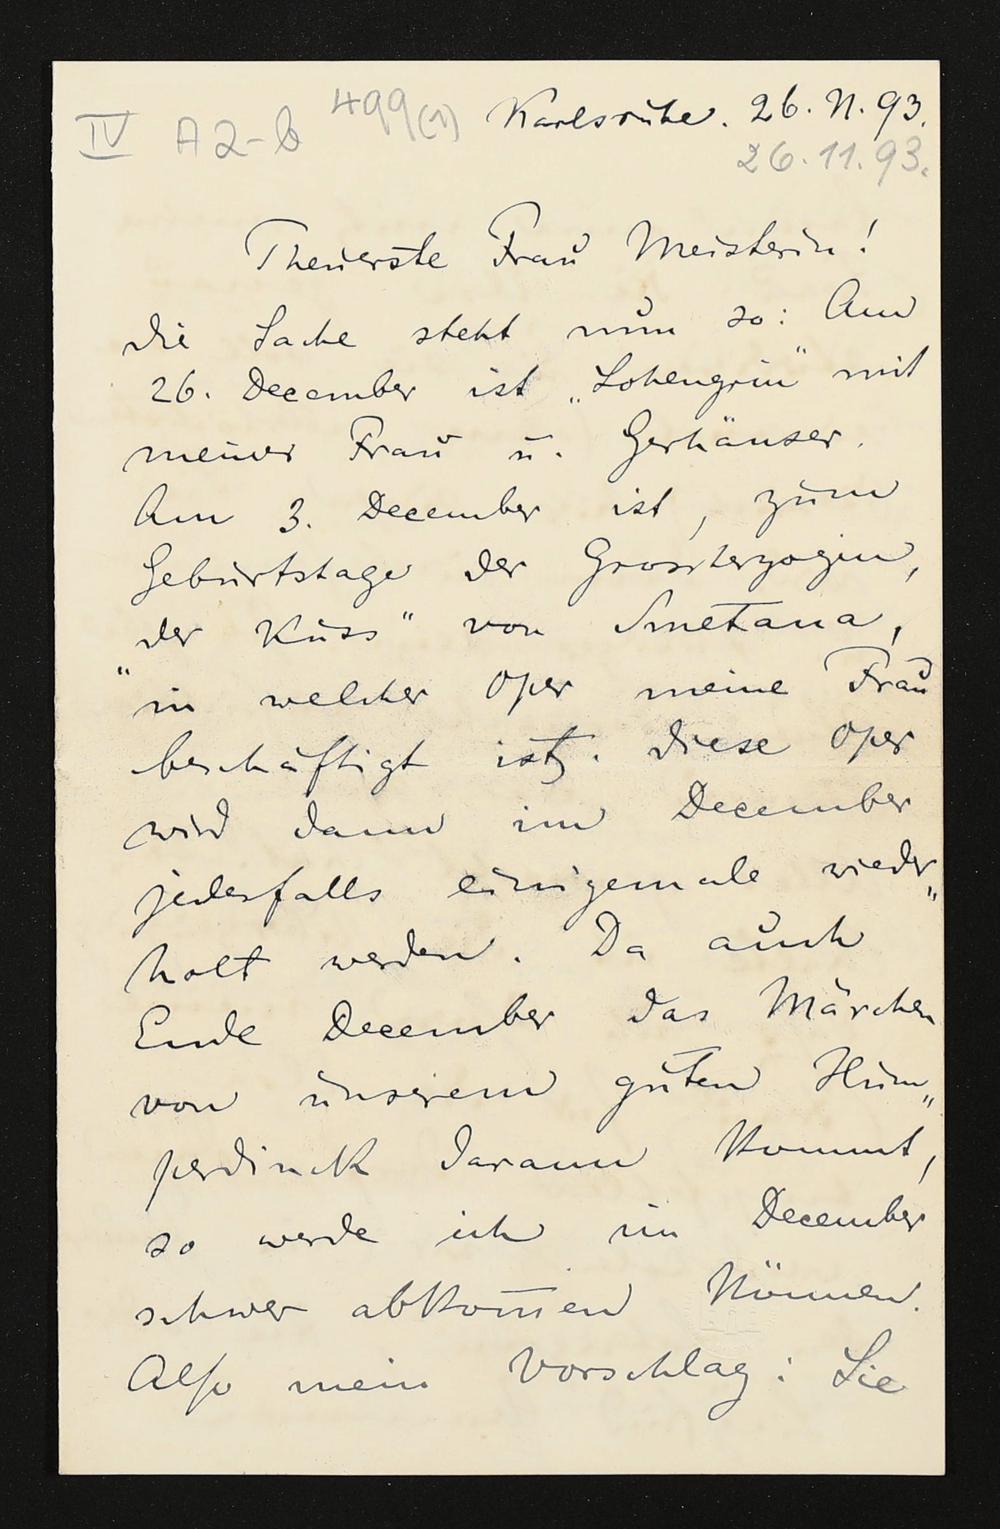 IV A2-b 499(1) Karlsruhe. 26. 11. 93.
26.11.93.
Theuerste Frau Meisterin!
die Sache steht nun so: Am
26. December ist „Lohengrin" mit
meiner Frau u. Gerhäuser.
Am 3. December ist, zum
Geburtstage der Grossherzogin,
„der Kuss" von Smetana,
in welcher Oper meine Frau
beschäftigt ist. Diese Oper
wird dann im December
jedesfalls einigemale wieder„
holt werden. Da auch
Ende December das Märchen
von unserem guten Hum„
perdinck darann kommt,
so werde ich im December
schwer abkom̅en können.
Also mein Vorschlag: Sie